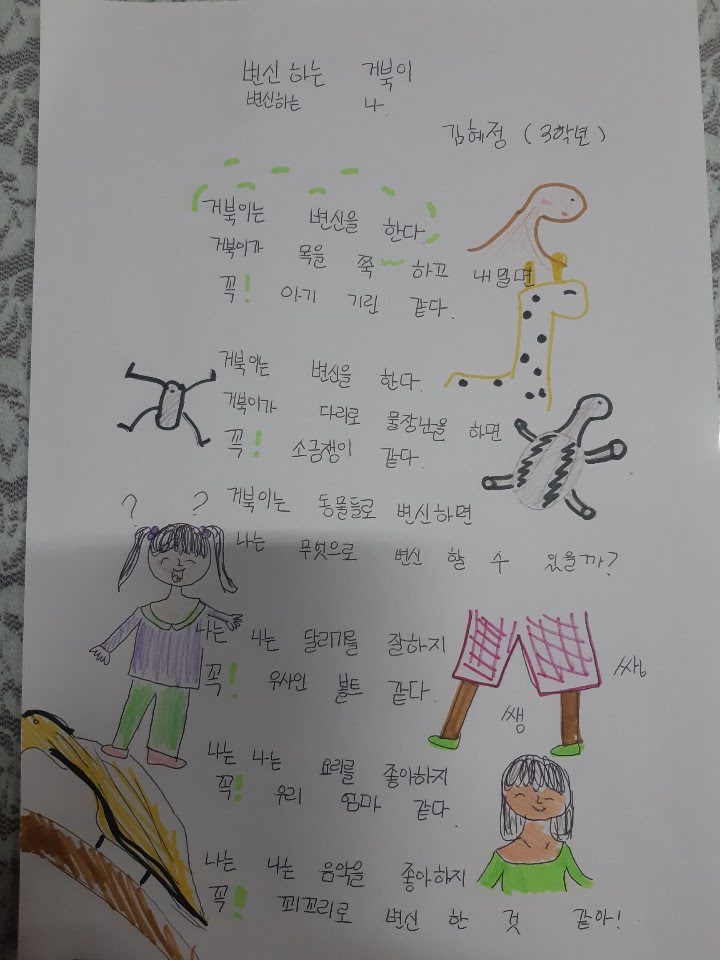 변신 하는 거북이
변신하는 나
김혜정 (3학년)
거북이는 변신을 한다.
거북이가 목을 쭉~ 하고 내밀면
꼭! 아기 기린 같다.
거북이는 변신을 한다.
거북이가 다리로 물장난을 하면
꼭! 소금쟁이 같다.
거북이는 동물들로 변신하면
? ?
나는 무엇으로 변신 할 수 있을까?
나는 나는 달리기를 잘하지
쌩
꼭! 우사인 볼트 같다.
쌩
나는 나는 요리를 좋아하지
꼭! 우리 엄마 같다.
나는 나는 음악을 좋아하지
꼭! 꾀꼬리로 변신 한 것 같아!